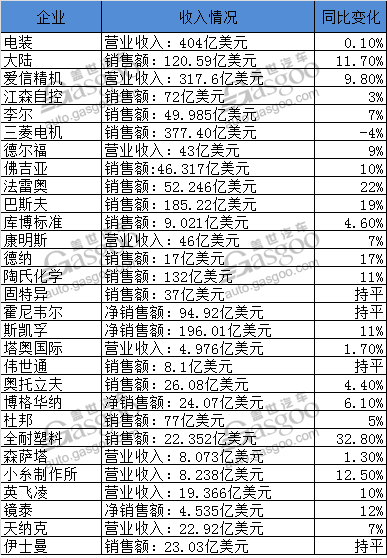 企业 收入情况 同比变化
电装 营业收入：404亿美元 0.10%
大陆 销售额：120.59亿美元 11.70%
爱信精机 营业收入：317.6亿美元 9.80%
江森自控 销售额：72亿美元 3%
李尔 销售额：49.985亿美元 7%
三菱电机 销售额：377.40亿美元 -4%
德尔福 营业收入：43亿美元 9%
佛吉亚 销售额:46.317亿美元 10%
法雷奥 销售额：52.246亿美元 22%
巴斯夫 销售额：185.22亿美元 19%
库博标准 销售额：9.021亿美元 4.60%
康明斯 营业收入：46亿美元 7%
德纳 销售额：17亿美元 17%
陶氏化学 销售额：132亿美元 11%
固特异 销售额：37亿美元 持平
霍尼韦尔 净销售额：94.92亿美元 持平
斯凯孚 净销售额：196.01亿美元 11%
塔奥国际 营业收入：4.976亿美元 1.70%
伟世通 销售额：8.1亿美元 持平
奥托立夫 销售额：26.08亿美元 4.40%
博格华纳 净销售额：24.07亿美元 6.10%
杜邦 销售额：77亿美元 5%
全耐塑料 销售额：22.352亿美元 32.80%
森萨塔 营业收入：8.073亿美元 1.30%
小糸制作所 营业收入：8.238亿美元 12.50%
英飞凌 营业收入：19.366亿美元 10%
镜泰 净销售额：4.535亿美元 12%
天纳克 营业收入：22.92亿美元 7%
伊士曼 销售额：23.03亿美元 持平
盖世汽车
Gasgoo
auto.gasgoo.com